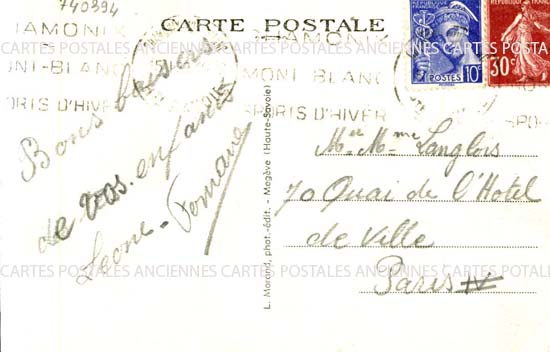 740394
CARTE POSTALE
CHAMONIX
MONT-BLANC
SPORTS D'HIVER
AMONI
MONT BLANC
SPORIS D'HIVER
SPO
POSTES
10c
30c
Bons baisers
de vos enfants
Leone - Fernand
L. Morand, phot.-édit. - Megève (Haute-Savoie)
Mr et Mme Langlois
70 Quai de l'Hotel
de Ville
Paris IV
CARTES POSTALES ANCIENNES CARTES POSTALES ANCIENNES CARTES POSTALES